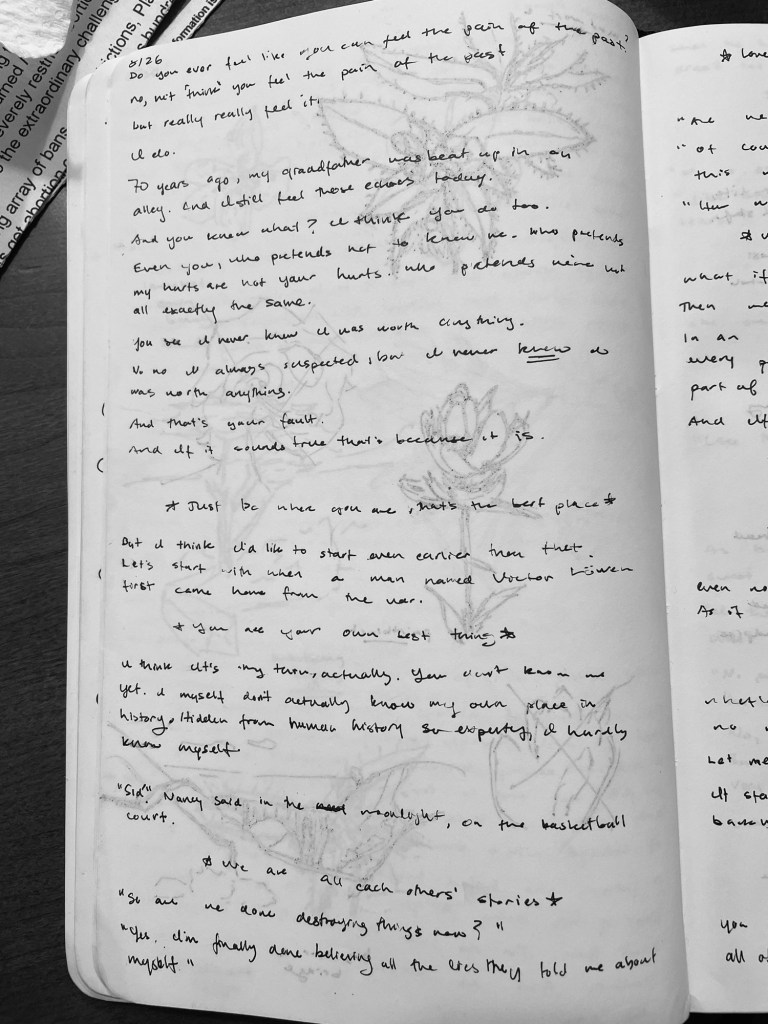 8/26
Do you ever feel like you can feel the pain of the past?
no, not "think" you feel the pain of the past
but really really feel it.
I do.
70 years ago, my grandfather was beat up in an
alley. And I still feel those echoes today.
And you know what? I think you do too.
Even you, who pretends not to know me. Who pretends
my hurts are not your hurts. Who pretends we're not
all exactly the same.
You see I never knew I was worth anything.
No no I always suspected, but I never knew I
was worth anything.
And that's your fault.
And if it sounds true that's because it is.
* Just be where you are, that's the best place *
But I think I'd like to start even earlier than that.
Let's start with when a man named Victor Löwen
first came home from the war.
* You are your own best thing *
I think It's my turn, actually. You don't know me
yet. I myself don't actually know my own place in
history. Hidden from human history so expertly, I hardly
know myself
"Sid!" Nancy said in the moonlight, on the basketball
court.
* We are all each others' stories *
"So are we done destroying things now?"
"Yes. I'm finally done believing all the lies they told me about
myself"
* Love
"Are we
"Of cou
this
"
*
what if
Then
In an
every
part of
And If
even no
As of
no
Let me
It sta
back
you
all of
ctions,
ormation is
severely restri
the extraordinary challeng
g array of bans
abortion